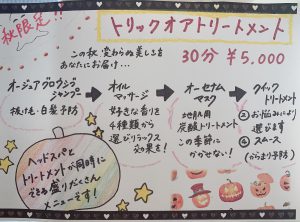 秋限定!!
トリックオアトリートメント
この秋、変わらぬ美しさを
あなたにお届け…
30分 ¥5,000
オージュアグロウシブ
シャンプー
抜け毛・白髪予防
オイル
マッサージ
好きな香りを
4種類から
選びリラックス
効果を!
オーセナム
マスク
地肌用
炭酸トリートメント
この季節に
かかせない!
クイック
トリートメント
② お悩みにより
選びます
④ スムース
(からまり予防)
ヘッドスパと
トリートメントが同時に
できる盛りだくさん
メニューです!